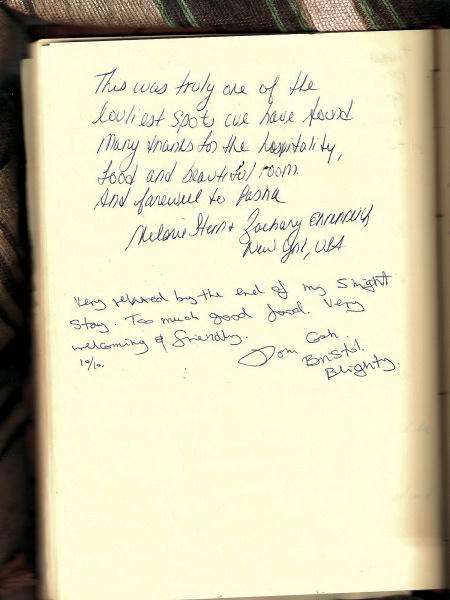 This was truly one of the
lovliest spots we have found
Many thanks for the hospitality,
food and beautiful room.
And farewell to Pasha
Melanie Stern + Zachary Ehrenreich
New York, USA
Very relaxed by the end of my 5 night
stay. Too much good food. Very
welcoming & friendly.
10/10.
Tom Cash.
Bristol.
Blighty.